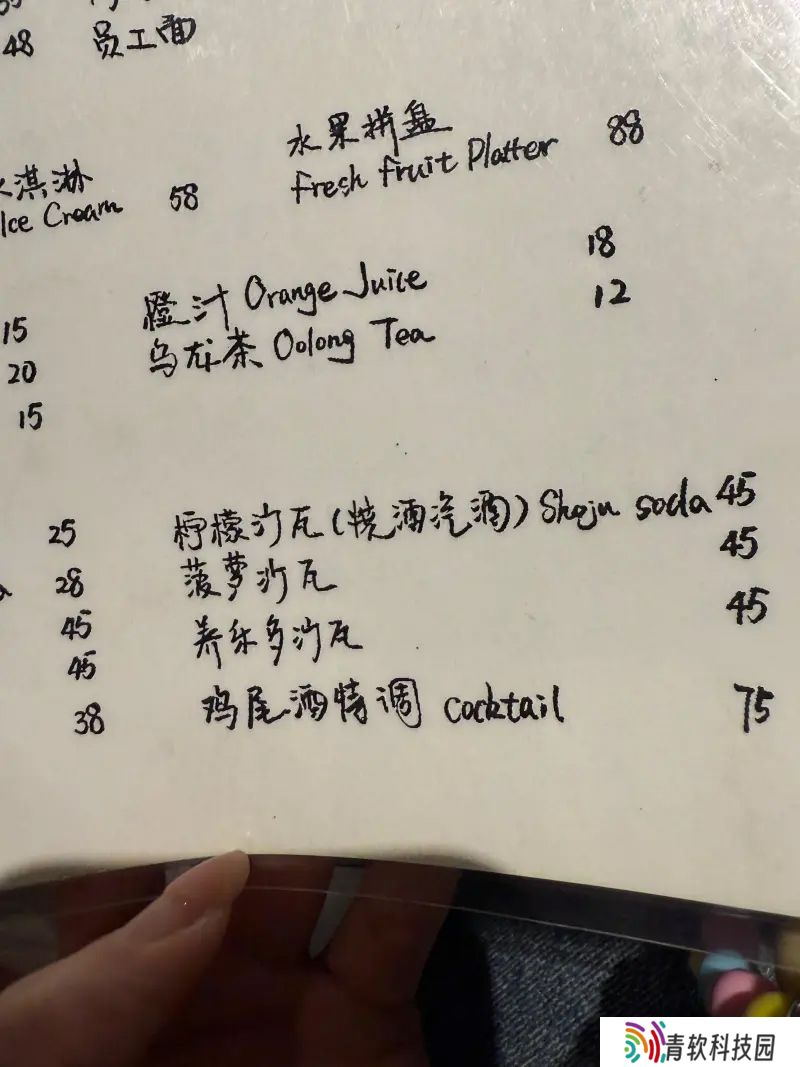 48 员工面
水果拼盘 88
fresh fruit Platter
淇淋 58
Ice Cream
18
橙汁 Orange Juice
12
15 乌龙茶 Oolong Tea
20
15
25 柠檬沙瓦(烧酒汽酒) Shoju soda 45
28 菠萝沙瓦 45
45 养乐多沙瓦 45
45
38 鸡尾酒特调 cocktail 75
青软科技园